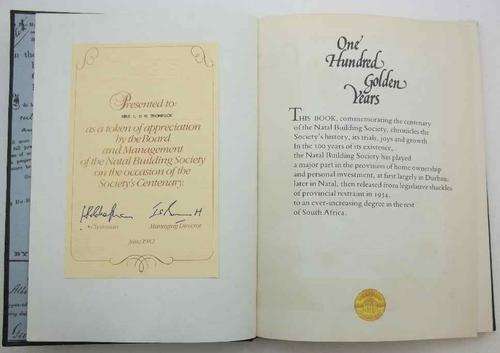 Presented to:
THOMPSON
as a token of appreciation
by the Board
and Management
of the Natal Building Society
on the occasion of the
Society's Centenary.
Chairman
Managing Director
June 1982
One
Hundred
Golden
Years
THIS BOOK, commemorating the centenary
of the Natal Building Society, chronicles the
Society's history, its trials, joys and growth.
In the 100 years of its existence,
the Natal Building Society has played
a major part in the provision of home ownership
and personal investment, at first largely in Durban,
later in Natal, then released from legislative shackles
of provincial restraint in 1952,
to an ever-increasing degree in the rest
of South Africa.